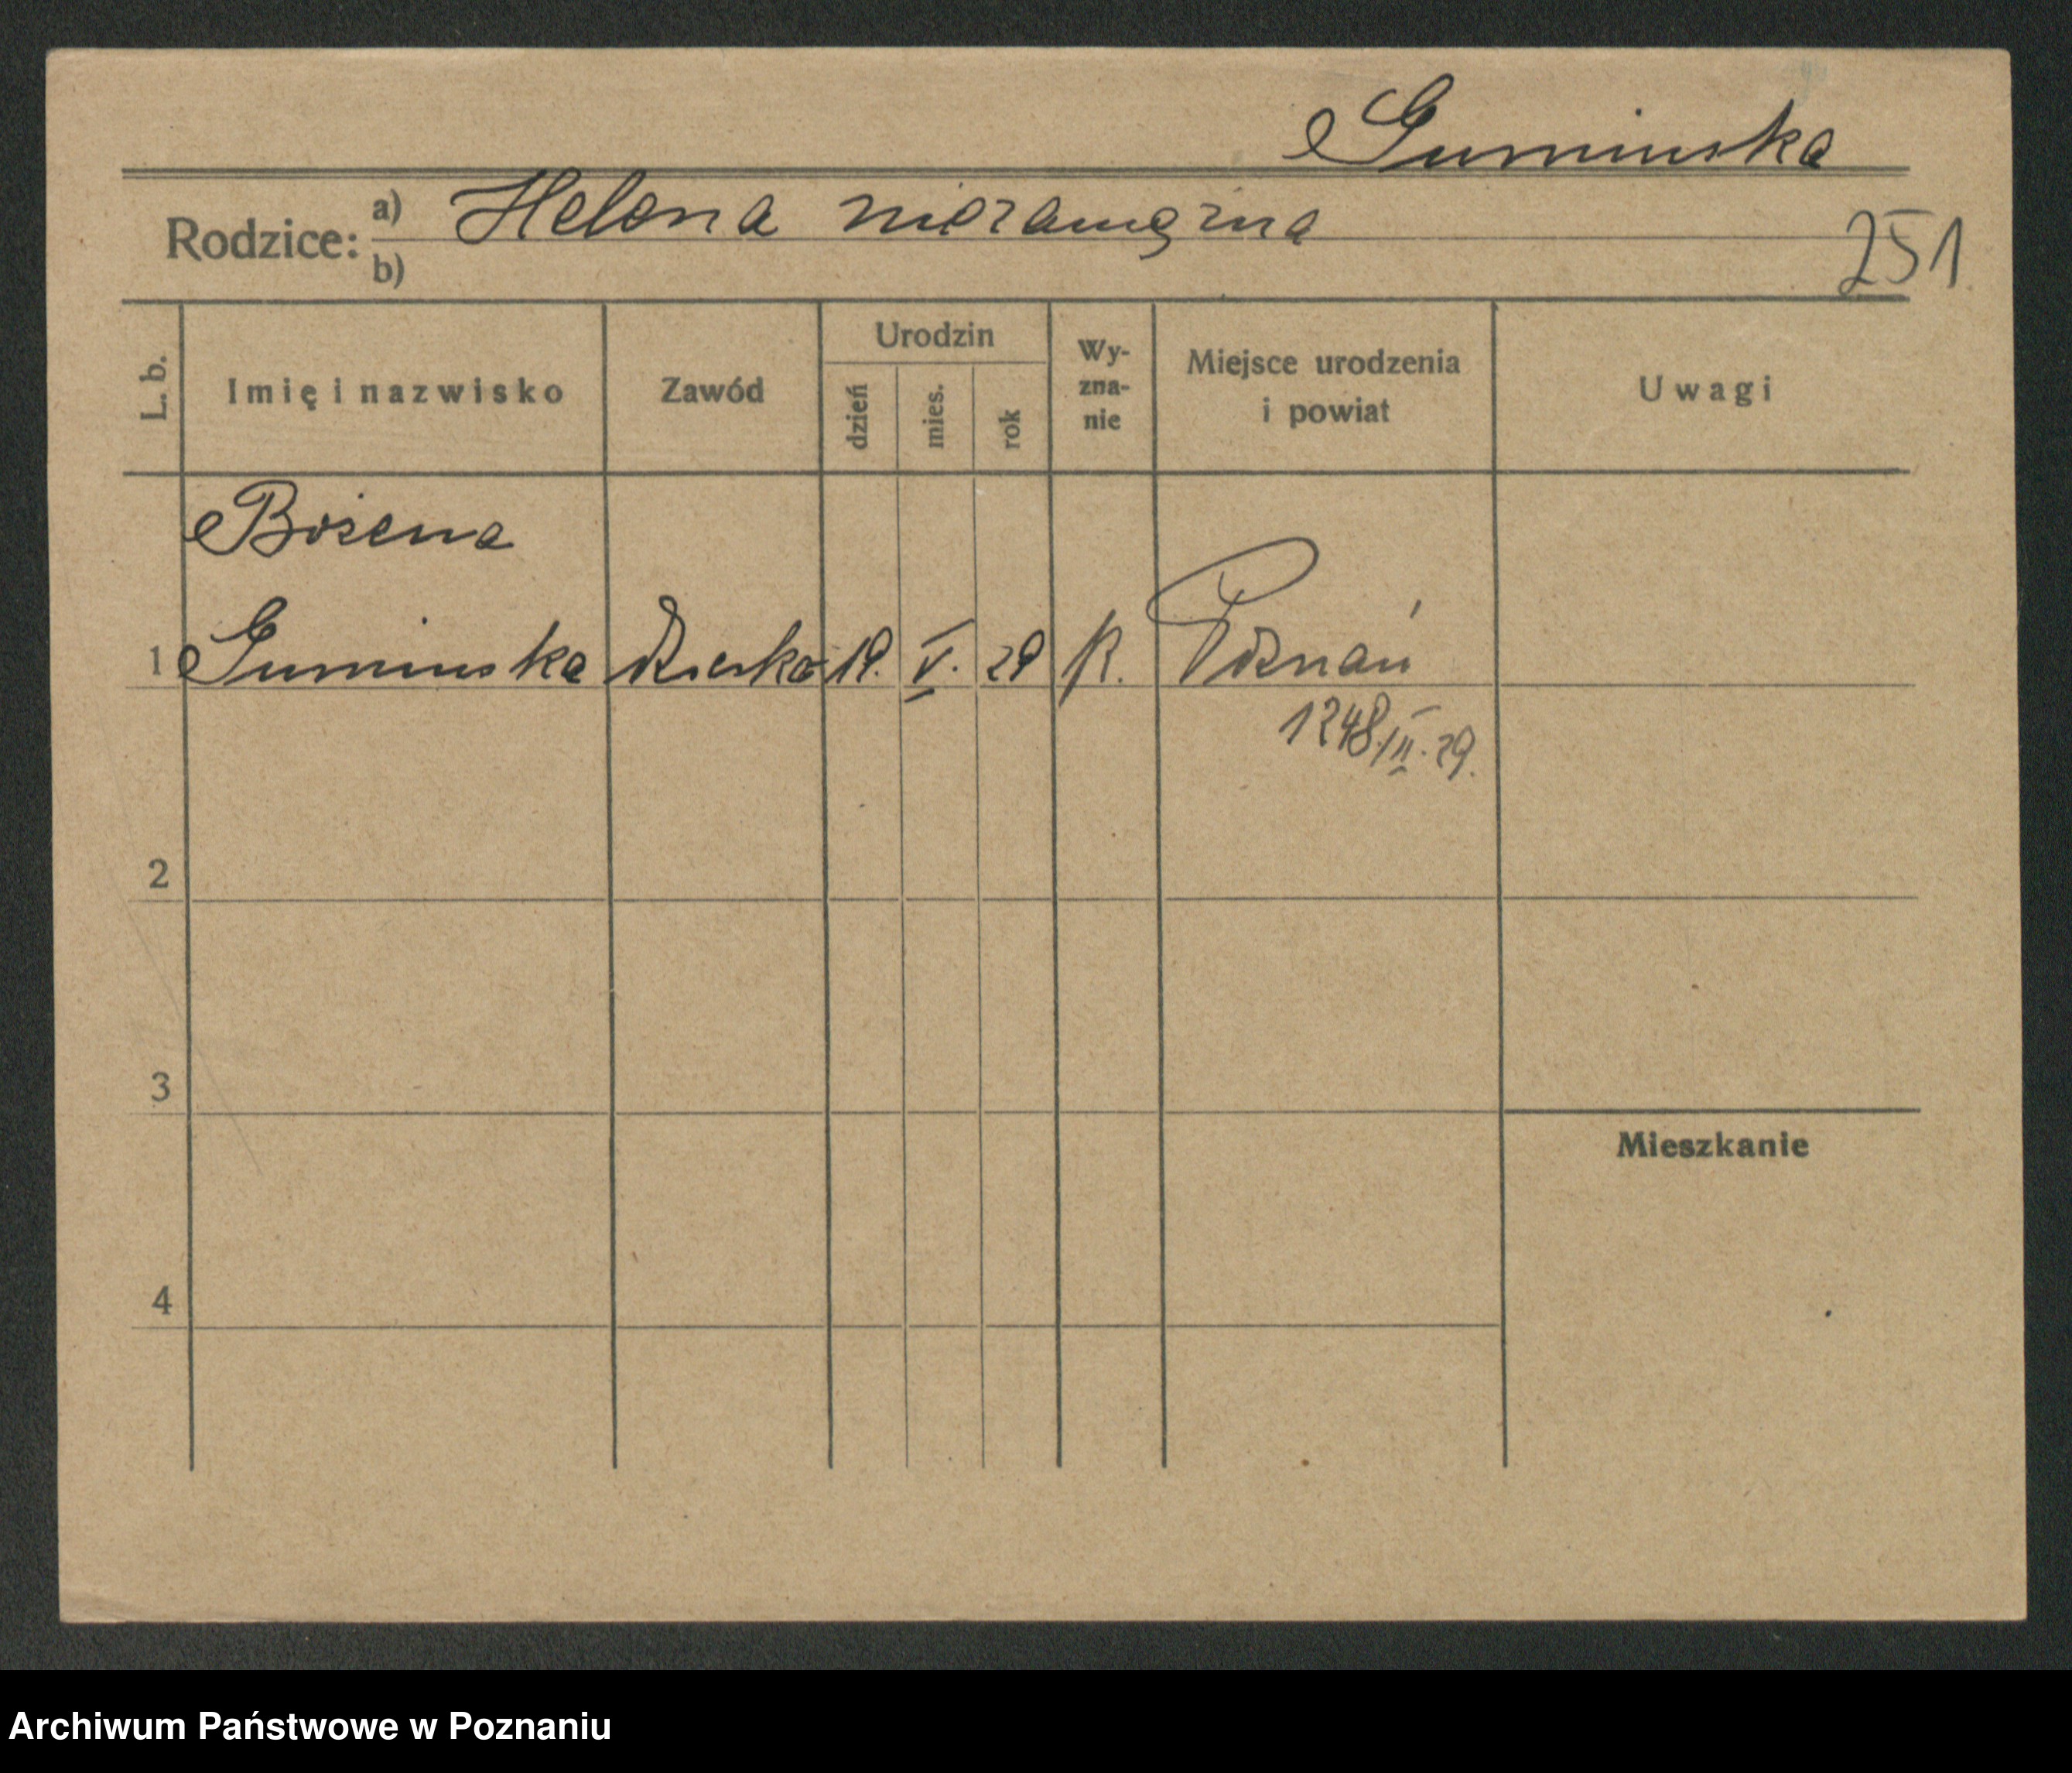 Guminska
Rodzice: a) Helena niezamężna
b)
251
L. b.
Imię i nazwisko
Zawód
Urodzin
dzień
mies.
rok
Wy-
zna-
nie
Miejsce urodzenia
i powiat
Uwagi
Bożena
1 Guminska dziecko 19. V. 29 R. Poznań
1248/II.29.
2
3
Mieszkanie
4
Archiwum Państwowe w Poznaniu